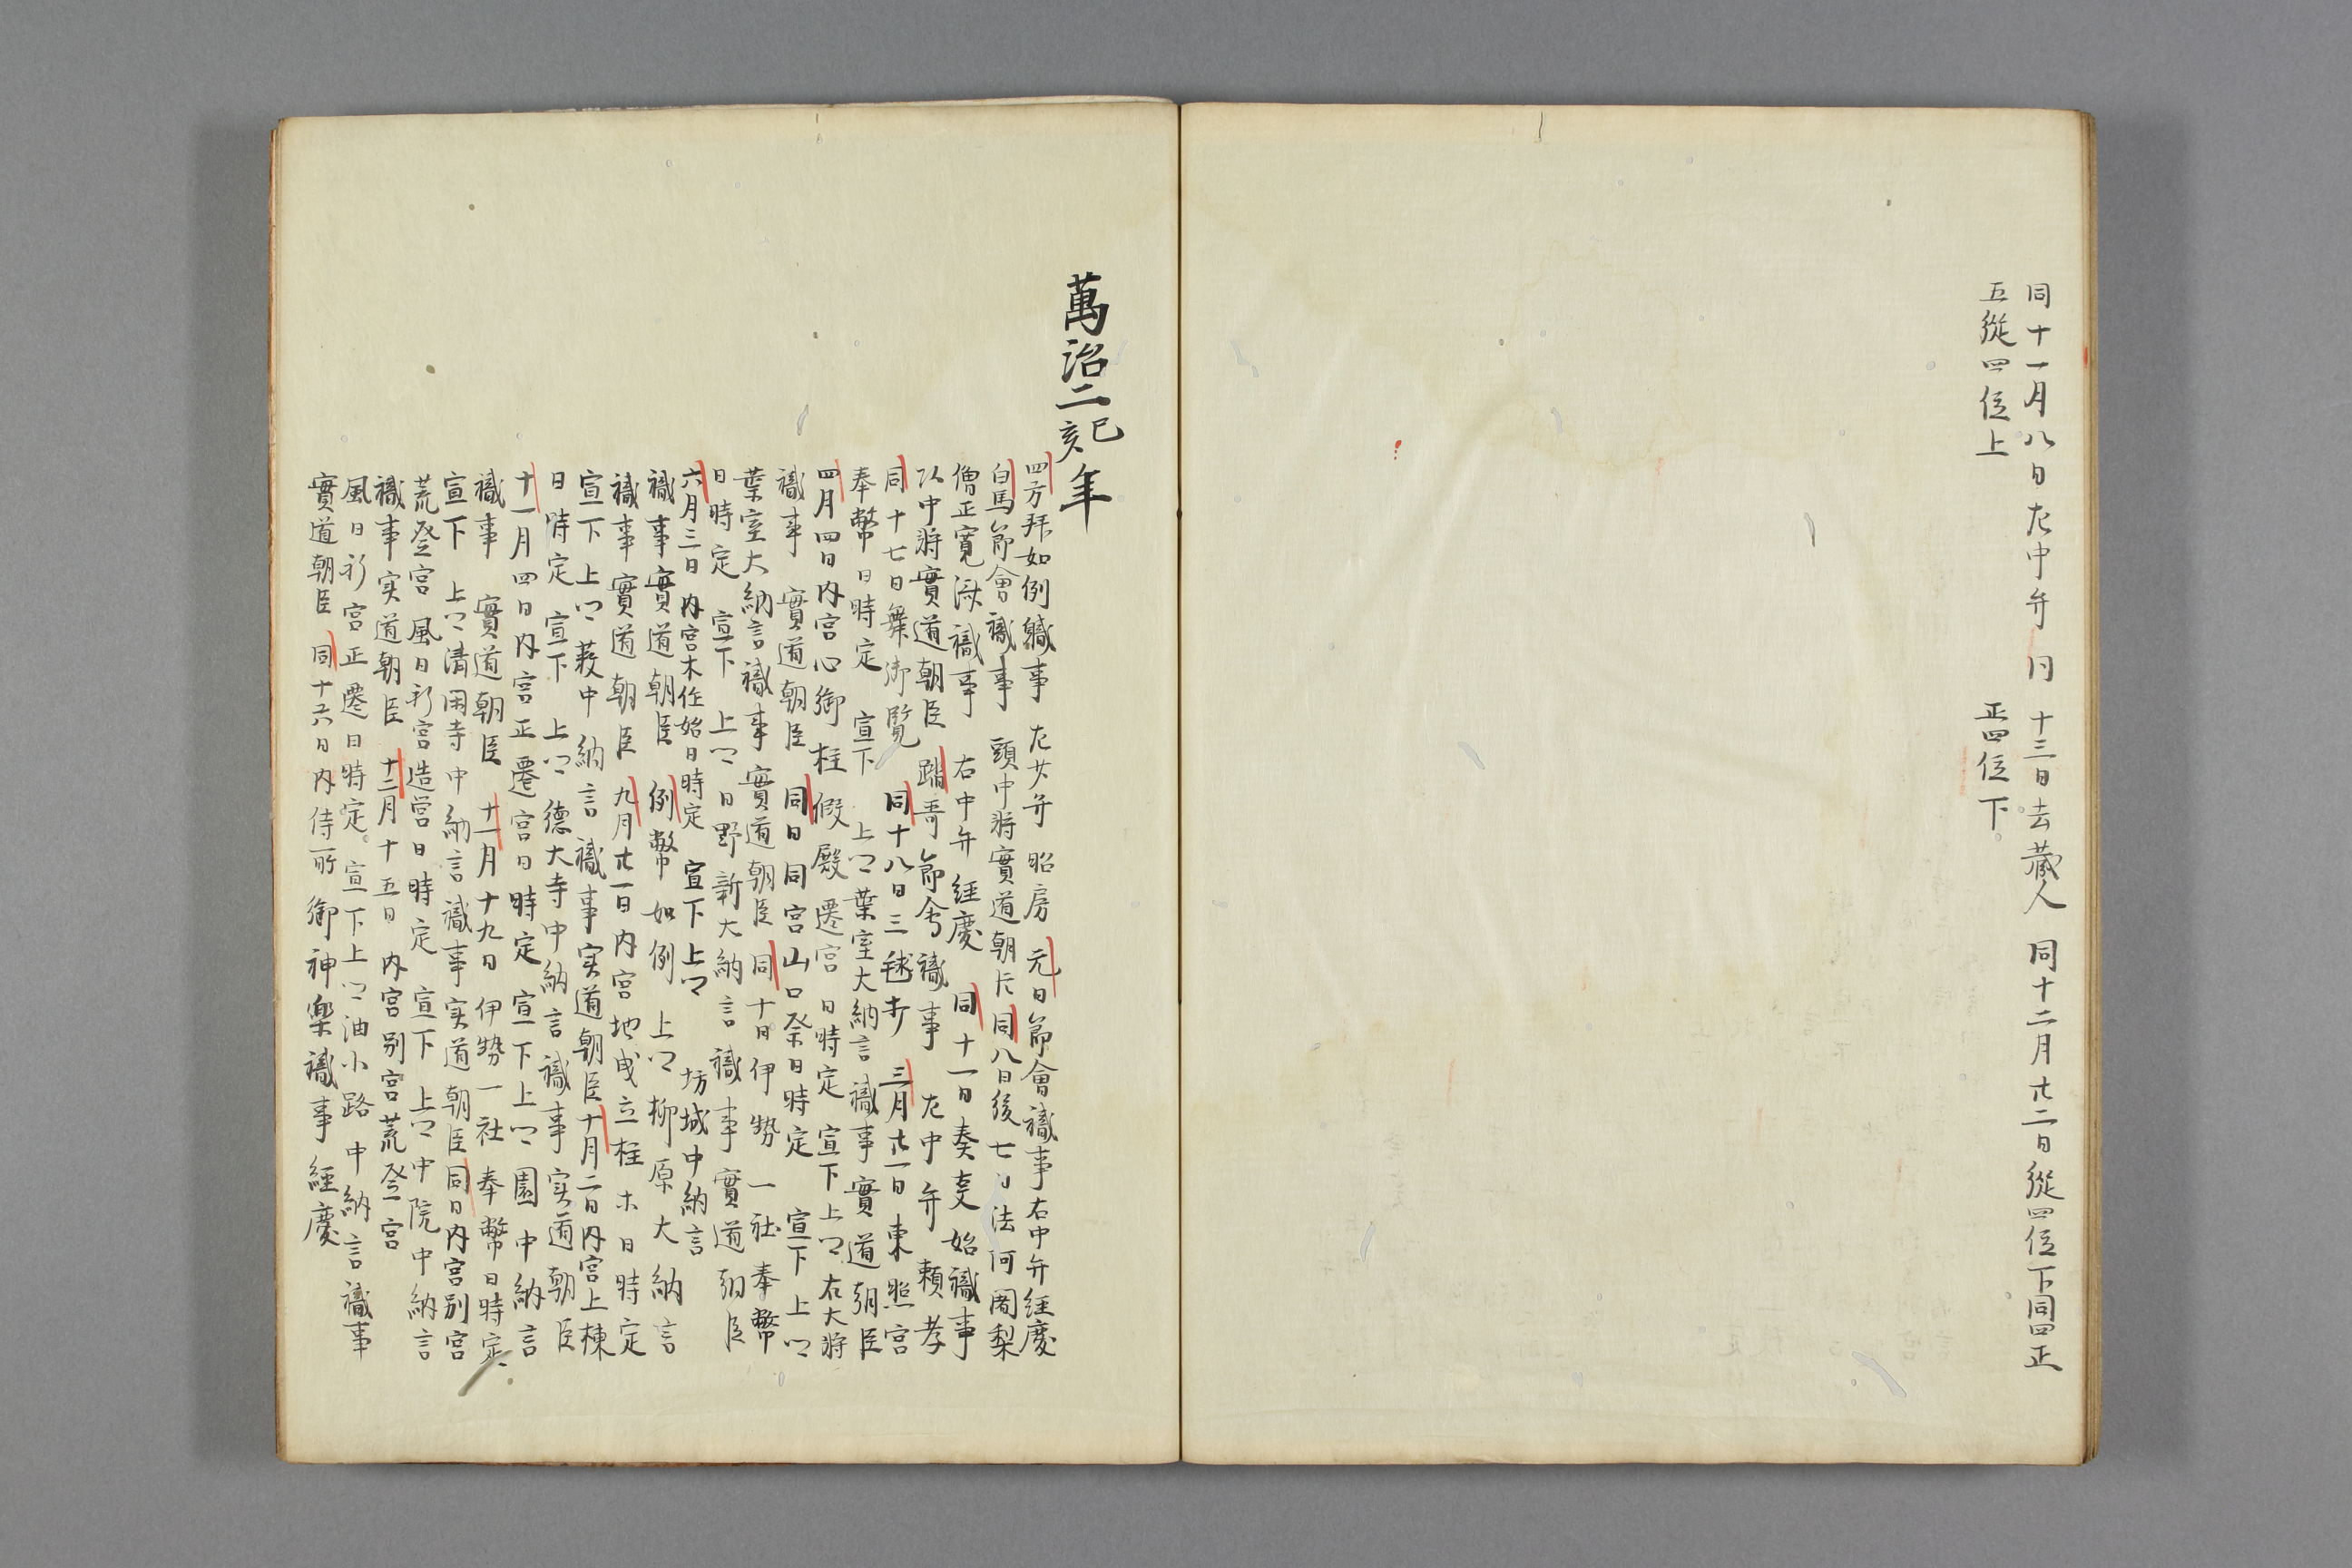 同十一月八日左中弁 同 十三日去蔵人 同十二月廿二日従四位下同四正
五従四位上 正四位下
萬治二己亥年
四方拝如例 軄事 左少弁 昭房 元日節會軄事右中弁経慶
白馬節會軄事 頭中将實道朝臣 同八日後七日法阿闍梨
僧正寛済軄事 右中弁 経慶 同十一日奏事始軄事
以中将實道朝臣 踏哥節會軄事 左中弁 頼孝
同十七日舞御覧 同十八日三毬打 三月廿一日東照宮
奉幣日時定 宣下 上卿葉室大納言軄事實道朝臣
四月四日内宮心御柱 假殿遷宮日時定 宣下上卿右大将
軄事 實道朝臣 同日同宮山口祭日時定 宣下上卿
葉室大納言軄事 實道朝臣 同十日伊勢一社奉幣
日時定 宣下 上卿日野新大納言軄事實道朝臣
六月三日内宮木作始日時定 宣下上卿 坊城中納言
軄事實道朝臣 例幣如例 上卿柳原大納言
軄事實道朝臣 九月廿一日内宮地曳立柱 日時定
宣下上卿薮中納言軄事実道朝臣 十月二日内宮上棟
日時定 宣下 上卿徳大寺中納言軄事実道朝臣
十一月四日内宮正遷宮日時定 宣下上卿園中納言
軄事 實道朝臣 十一月十九日伊勢一社奉幣日時定
宣下 上卿清閑寺中納言軄事実道朝臣同日内宮別宮
荒祭宮 風日祈宮造営日時定 宣下上卿中院中納言
軄事実道朝臣 十二月十五日 内宮別宮荒祭宮
風日祈宮正遷日時定 宣下上卿油小路中納言軄事
實道朝臣 同十六日内侍所御神樂軄事 経慶